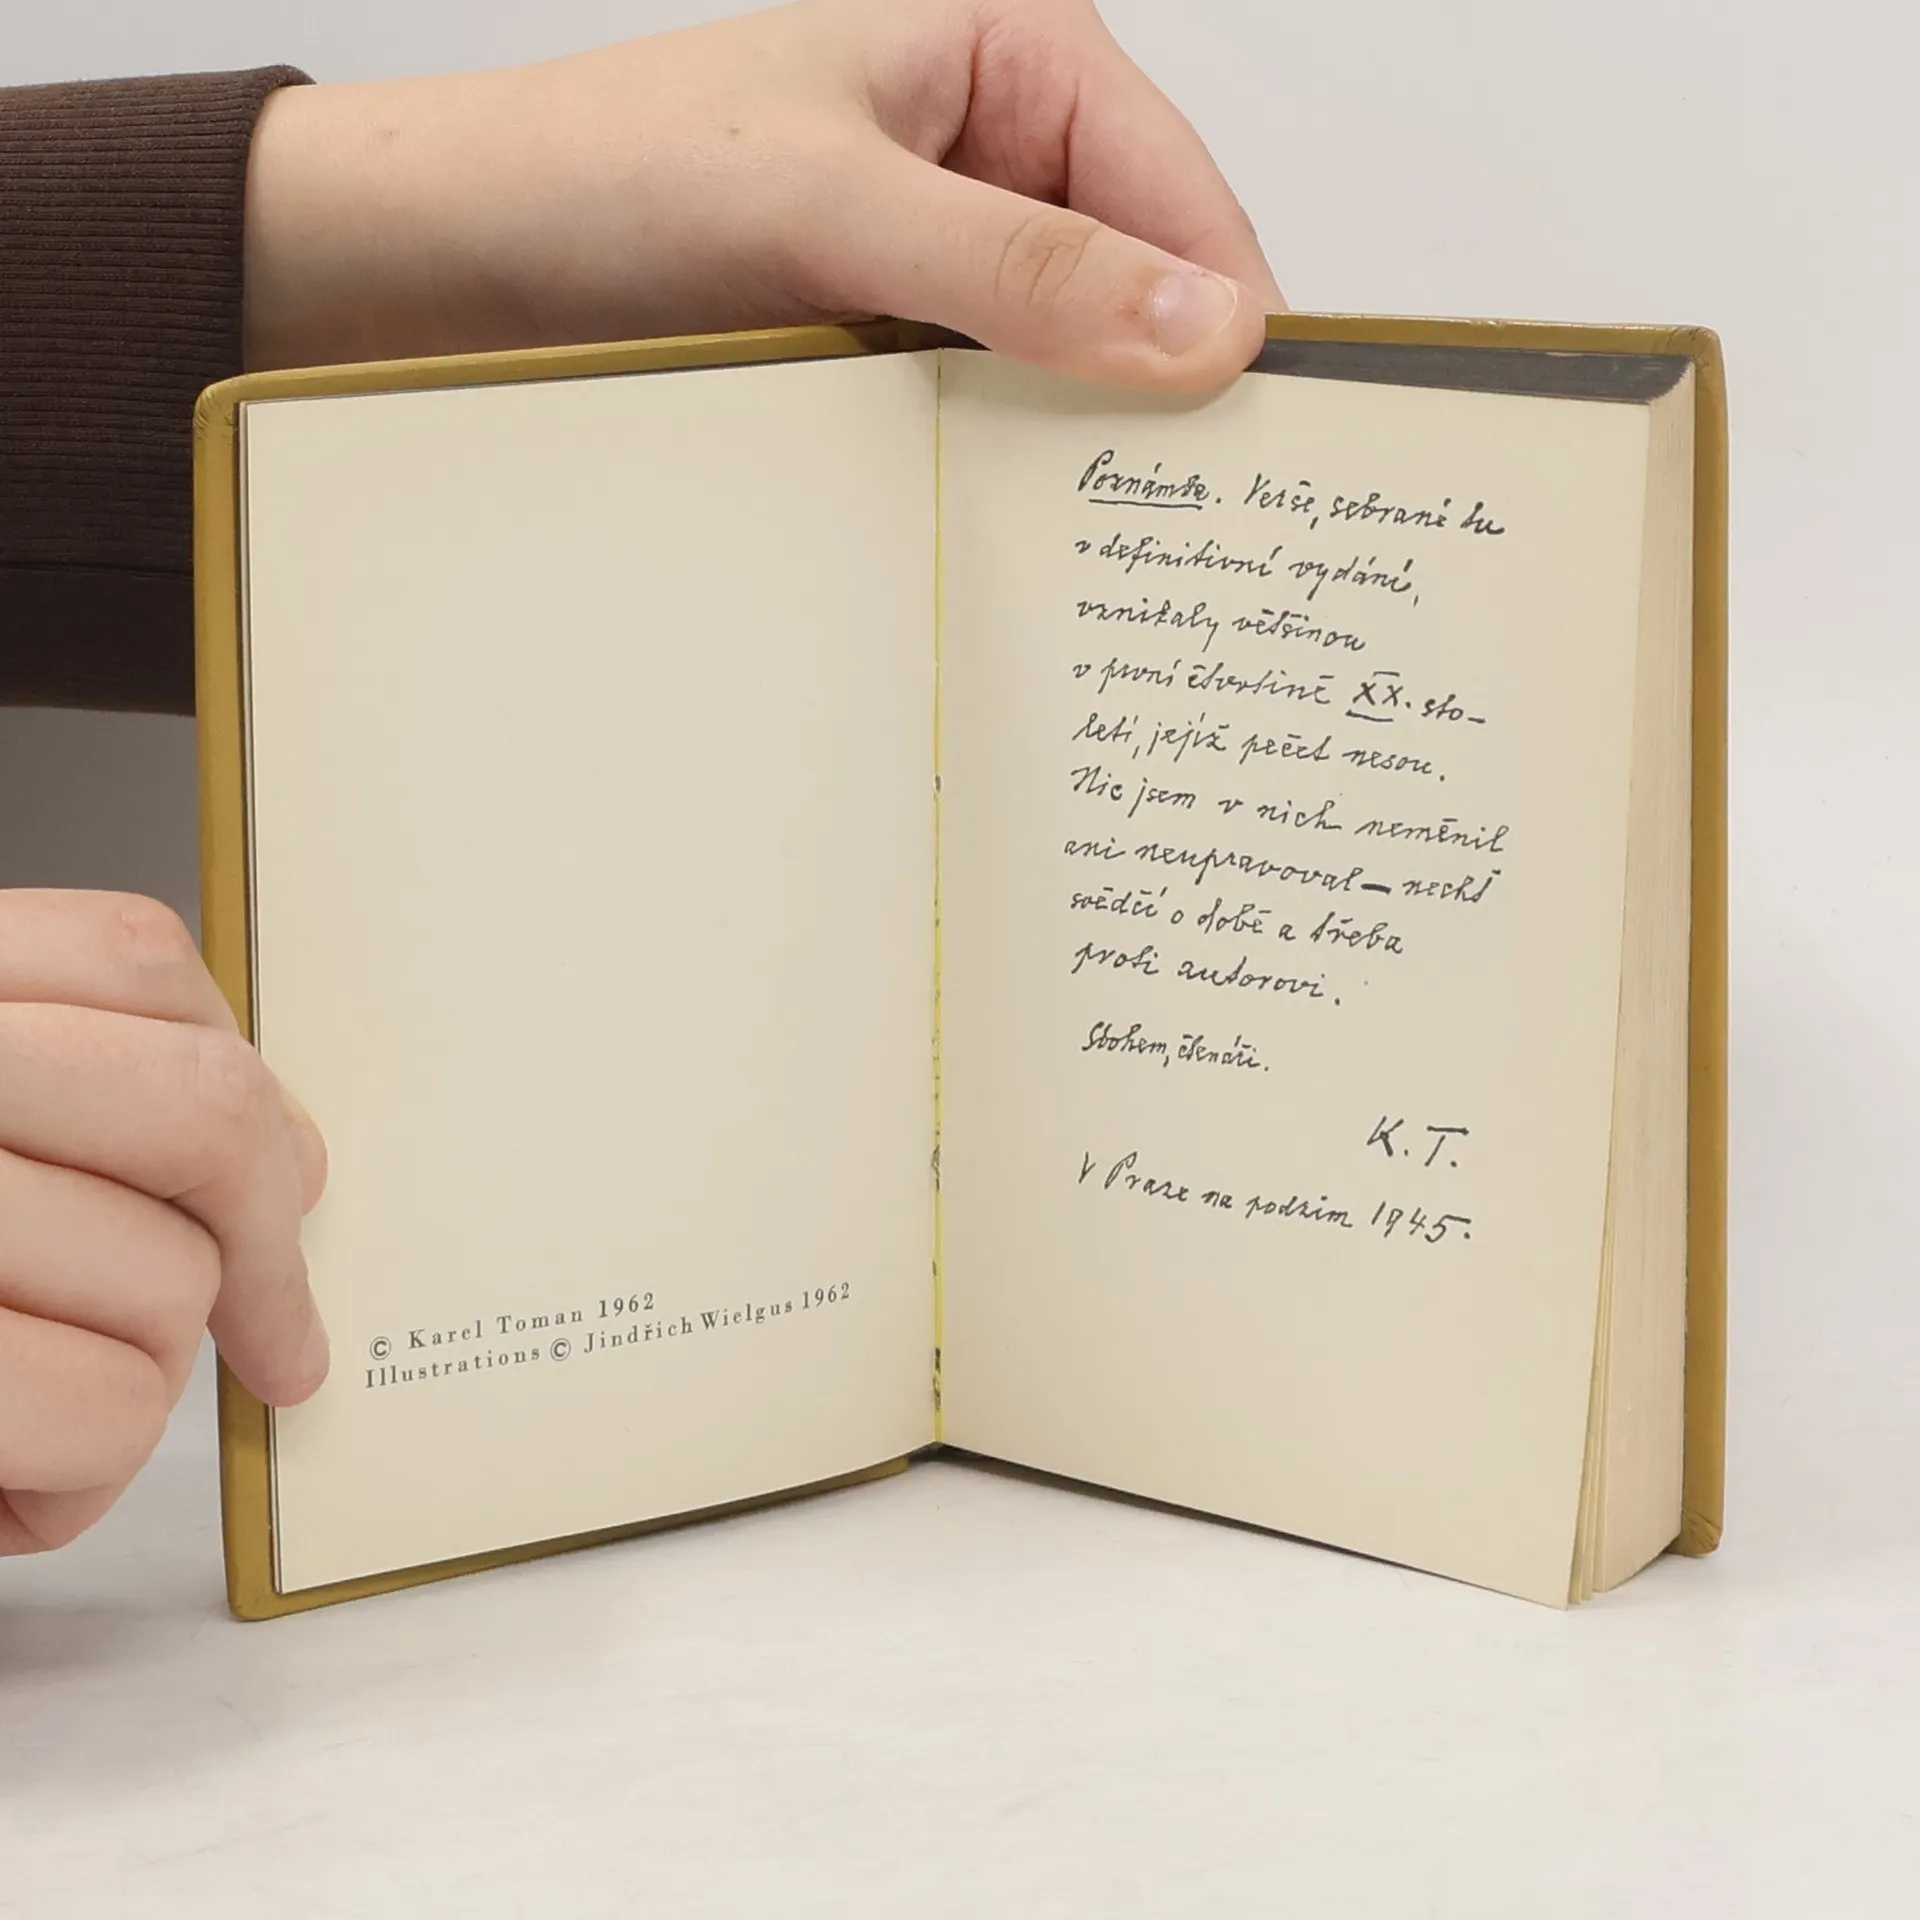 © Karel Toman 1962
Illustrations © Jindřich Wielgus 1962
Poznámka. Verše, sebrané tu
v definitivní vydání,
vznikaly většinou
v první čtvrtině XX. sto-
letí, jejíž pečeť nesou.
Nic jsem v nich neměnil
ani neupravoval — nechť
svědčí o době a třeba
proti autorovi.
Sbohem, čtenáři.
K. T.
V Praze na podzim 1945.